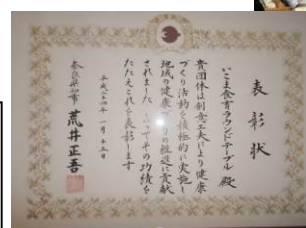 表彰状
いこま食育ラウンドテーブル 殿
貴団体は創意工夫により健康
づくり活動を積極的に実施し
地域の健康づくりの推進に貢献
されました よってその功績を
たたえこれを表彰します
平成二十四年 一月 十五日
奈良県知事 荒井正吾